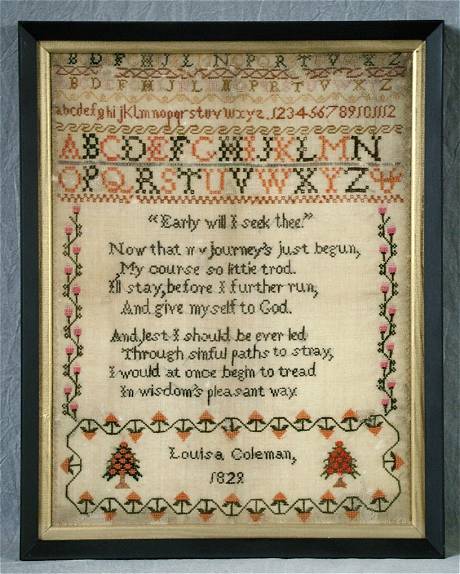 B D F H J L N P R T V X Z
B D F H J L N P R T V X Z
abcdefghijklmnopqrstuvwxyz. 123456789101112
ABCDEFGHIJKLMN
OPQRSTUVWXYZ
"Early will I seek thee."
Now that my journey's just begun,
My course so little trod.
I'll stay, before I further run,
And give myself to God.
And lest I should be ever led
Through sinful paths to stray,
I would at once begin to tread
In wisdom's pleasant way.
Louisa Coleman,